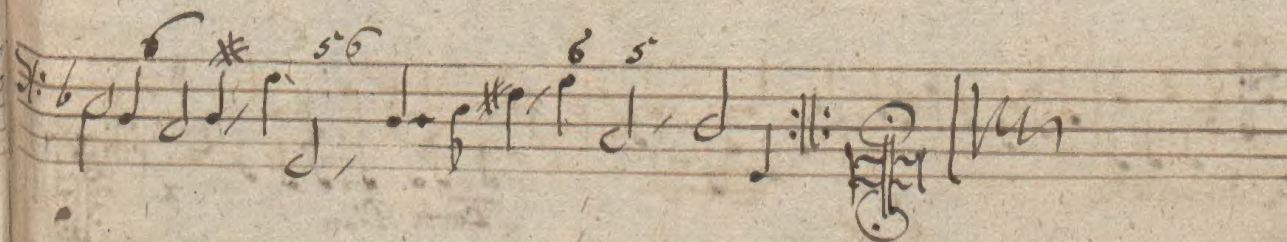 6 5 6 6 5